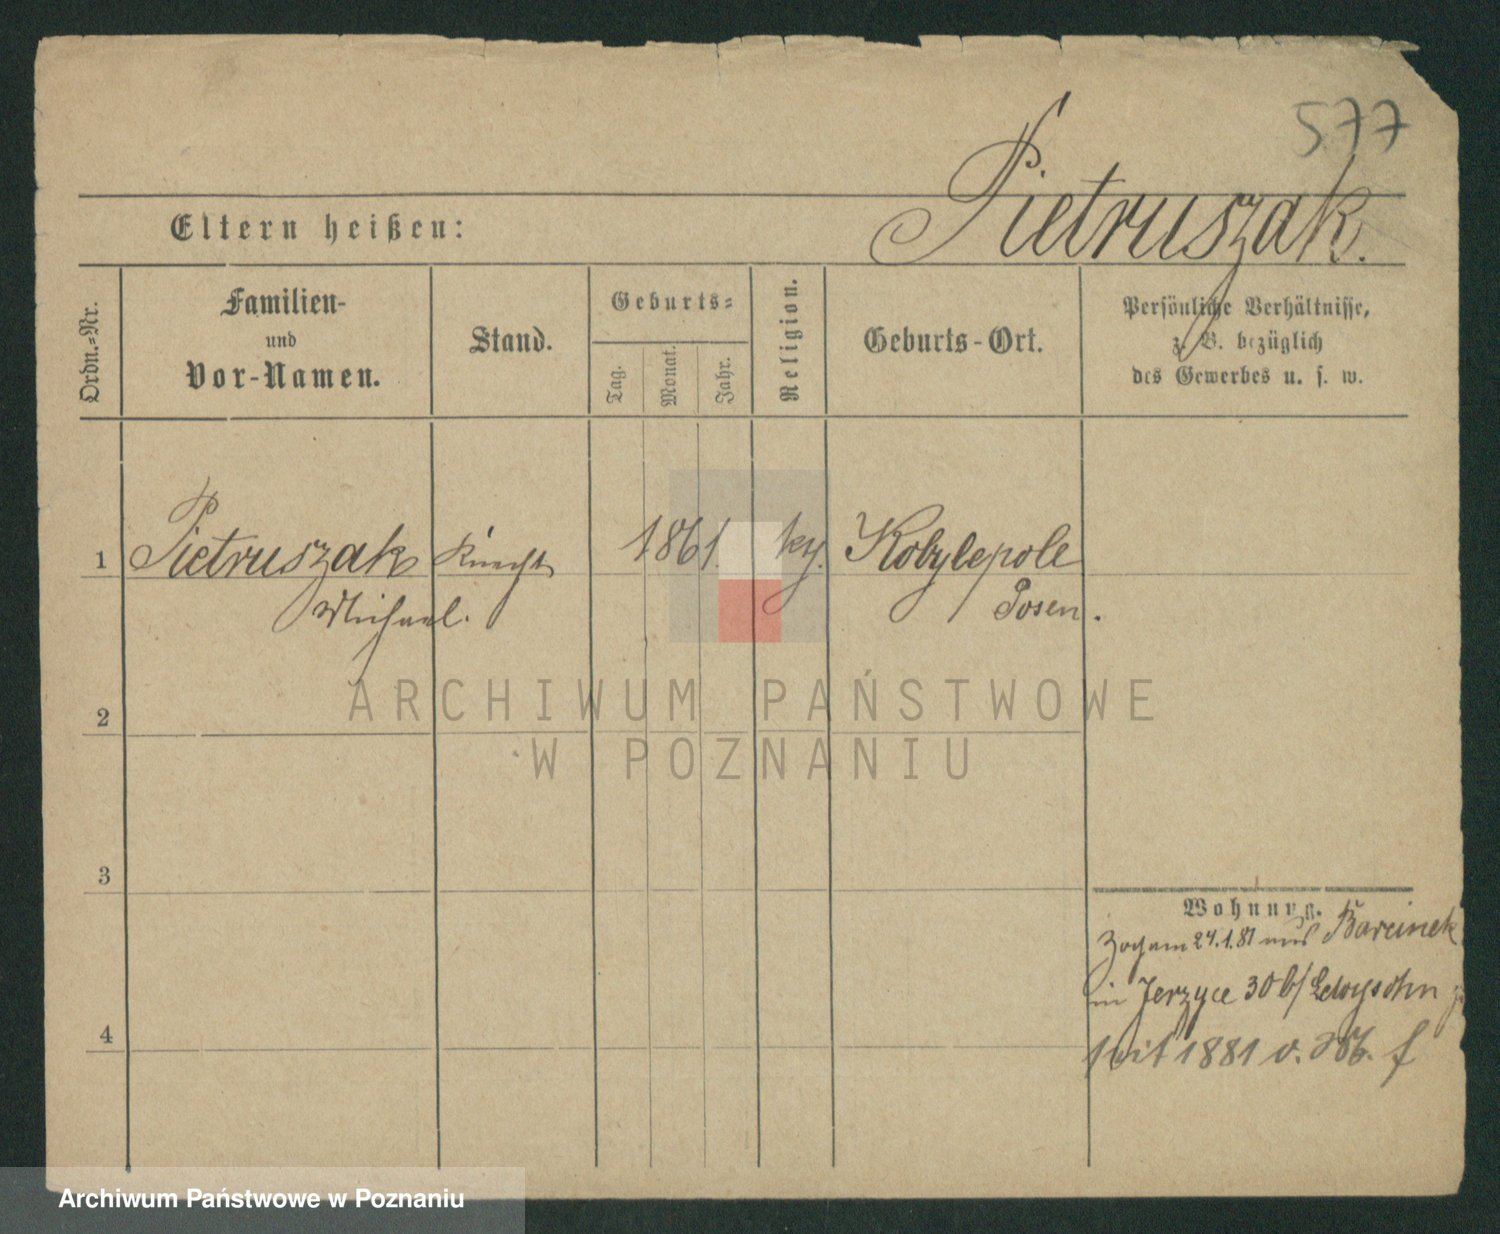 577
Pietruszak.
Eltern heißen:
Ordn.=Nr.
Familien-
und
Vor-Namen.
Stand.
Geburts=
Tag.
Monat.
Jahr.
Religion.
Geburts-Ort.
Persönliche Verhältnisse,
z. B. bezüglich
des Gewerbes u. s. w.
1 Pietruszak Knecht 1861. Kobylepole
Michael. Posen.
2
3
4
Wohnung.
Zog am 24.1.81 aus Barcinek
in Jerzyce 30 b/
seit 1881 v.
ARCHIWUM PAŃSTWOWE
W POZNANIU
Archiwum Państwowe w Poznaniu